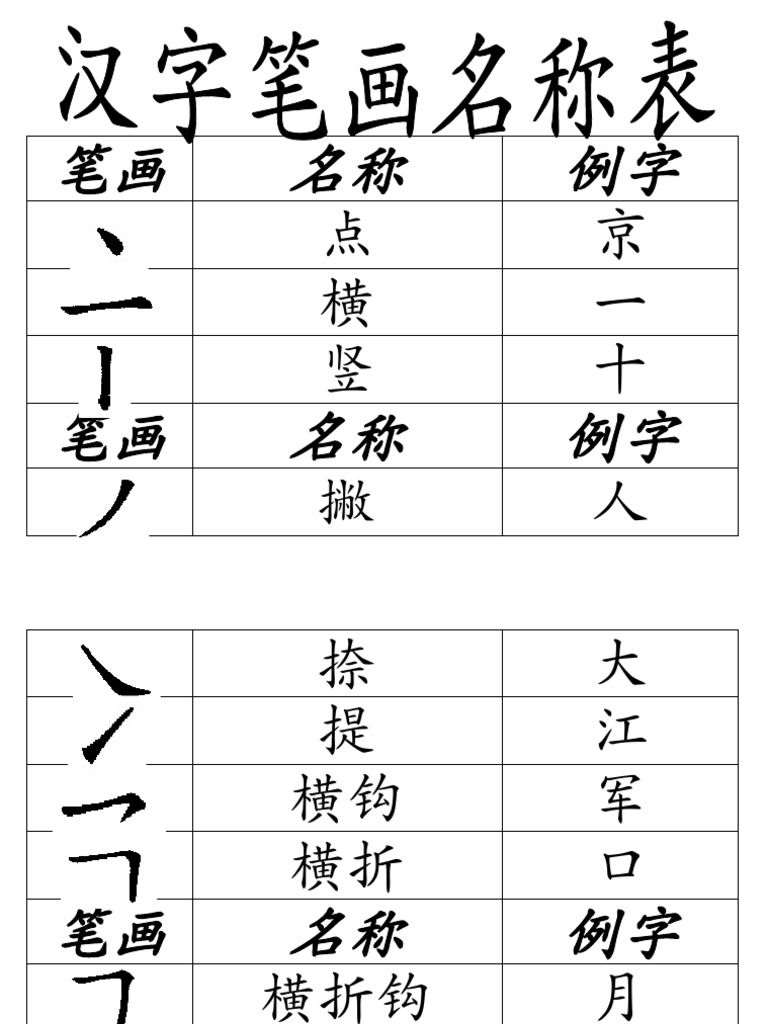 汉字笔画名称表
笔画 名称 例字
㇔ 点 京
㇐ 横 一
㇑ 竖 十
笔画 名称 例字
㇓ 撇 人
㇏ 捺 大
㇀ 提 江
㇖ 横钩 军
㇕ 横折 口
笔画 名称 例字
㇆ 横折钩 月